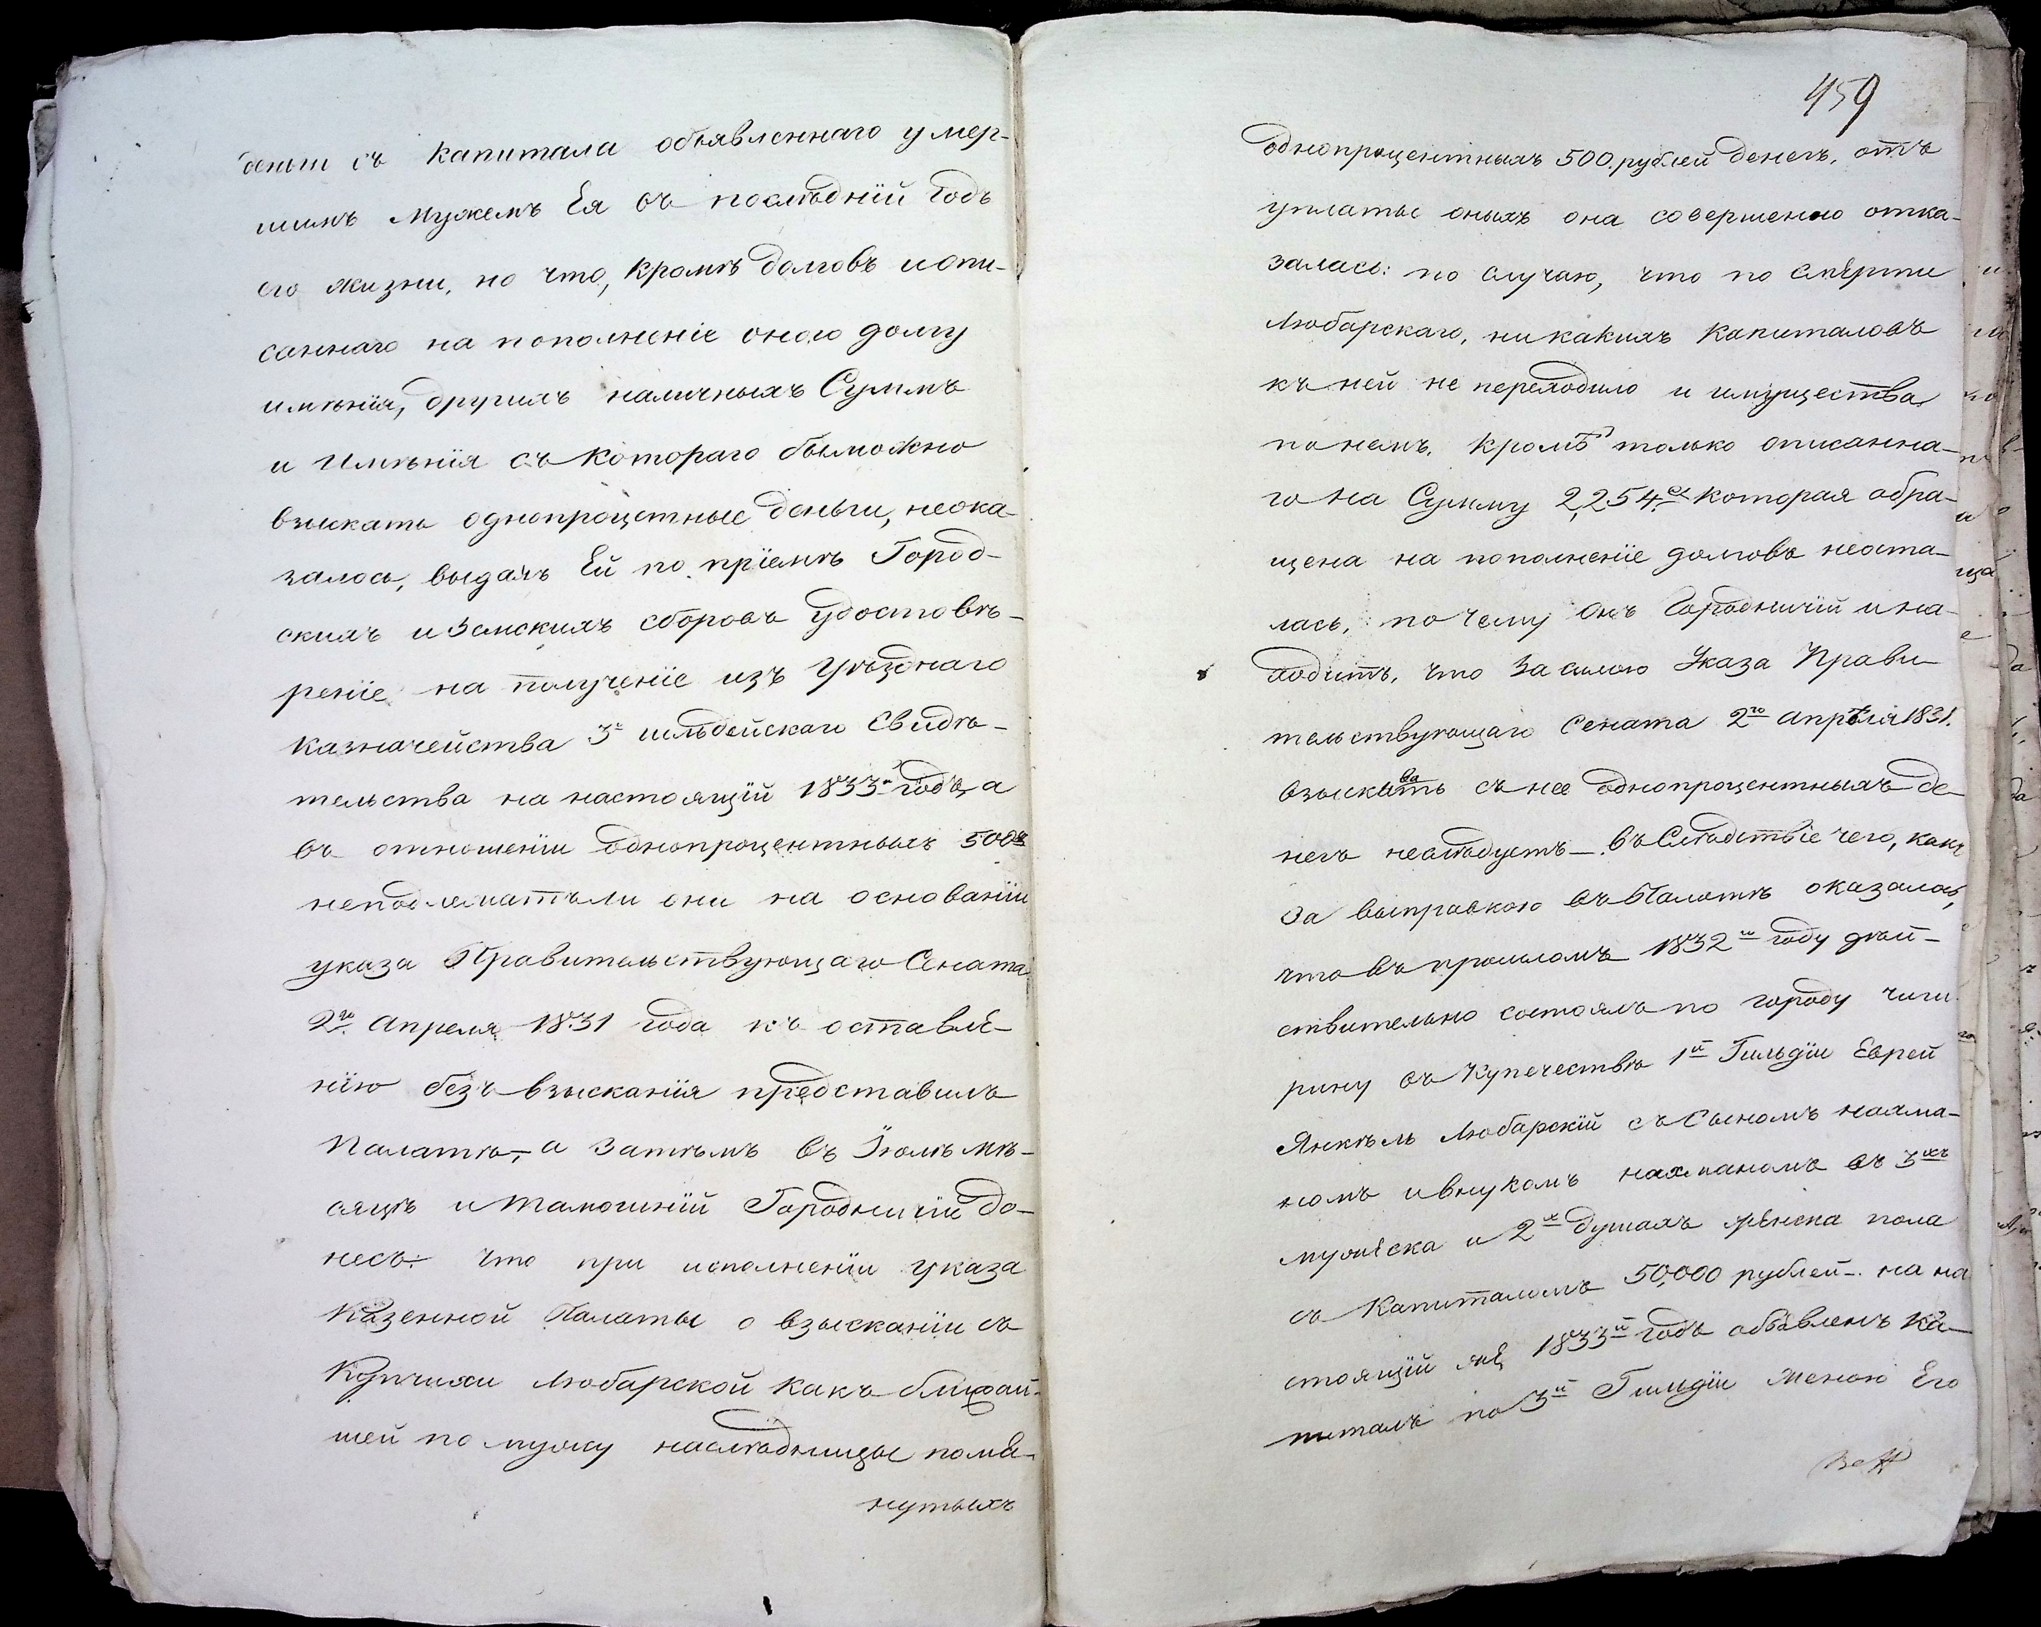 деньги съ капитала объявленнаго умер-
шимъ мужемъ Ея въ послѣднїй годъ
его жизни, но что, кромѣ долговъ и опи-
саннаго на пополненіе оного долгу
имѣнїя, другихъ наличныхъ Суммъ
и Имѣнїя съ котораго бы можно
взыскать однопроцетные деньги, неока-
залось, выдавъ Ей по прїемѣ Город-
скихъ и Земскихъ сборовъ удостовѣ-
ренїе на полученїе изъ Уѣзднаго
Казначейства 3й гильдейскаго Свидѣ-
тельства на настоящїй 1833й годъ, а
въ отношенїи однопроцентныхъ 500
неподлежатъ ли они на основанїи
указа Правительствующаго Сената
2го Апреля 1831 года къ оставле-
нїю безъ взысканїя представилъ
Палатѣ, а затѣмъ въ Їюлѣ мѣ-
сяцѣ и тамошнїй Городничїй до-
несъ: что при исполненїи указа
Казенной Палаты о взысканїи съ
Купчихи Любарской какъ ближай-
шей по мужу наслѣдницы помя-
нутыхъ
459
однопроцентныхъ 500 рублей денегъ, отъ
уплаты оныхъ она совершенно отка-
залась: по случаю, что по смерти
Любарскаго, никакихъ капиталовъ
къ ней не переходило и имущества
по немъ, кромѣ только описанна-
го на Сумму 2,254 которая обра-
щена на пополненїе долговъ неоста-
лась, по чему Онъ Городничїй и на-
ходитъ, что за силою Указа Прави-
тельствующаго Сената 2го Апрѣля 1831.
взыскивать съ нее однопроцентныхъ де-
негъ неслѣдуетъ – въ Слѣдствїе чего, какъ
за выправкою въ Палатѣ оказалось,
что въ прошломъ 1832м году дѣй-
ствительно состоялъ по городу Чиги-
рину въ Купечествѣ 1й Гильдїи Еврей
Янкѣль Любарскїй съ Сыномъ нахма-
номъ и внукомъ нахманомъ въ 3хъ
мужеска и 2хъ душахъ женска пола
съ Капиталомъ 50,000 рублей – на на
стоящїй же 1833й годъ объявленъ Ка-
питалъ по 3й Гильдїи Женою Его